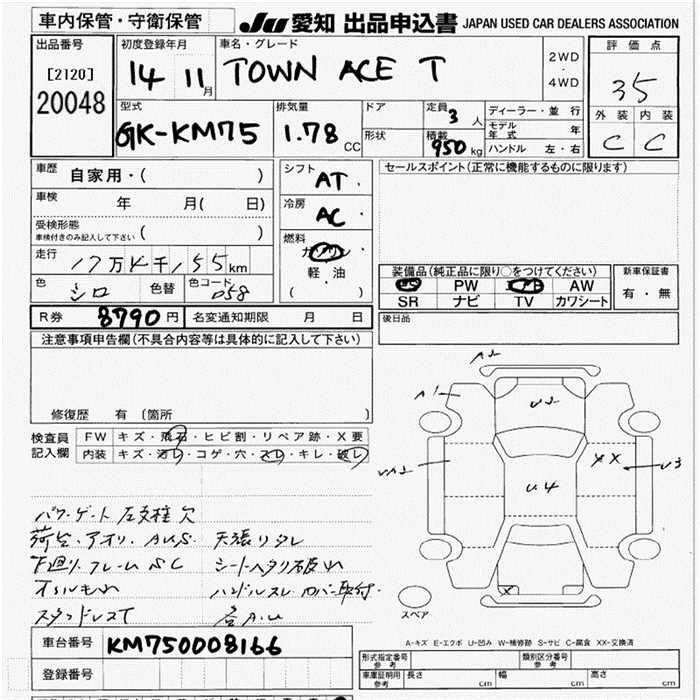 車内保管・守衛保管
JU 愛知 出品申込書 JAPAN USED CAR DEALERS ASSOCIATION
出品番号
[2120]
20048
初度登録年月
14 11月
車名・グレード
TOWN ACE T
2WD
・
4WD
評価点
35
外装 内装
C C
型式
GK-KM75
排気量
1.78 CC
ドア
形状
定員 3人
積載 950kg
ディーラー・並行
モデル年式 年
ハンドル 左・右
車歴
自家用・( )
車検
年 月( 日)
受検形態
車検付きのみ記入して下さい ( )
走行
17万4千155km
色 シロ 色替 色コード 058
シフト
AT
冷房
AC
燃料
ガソリン
軽油
( )
セールスポイント(正常に機能するものに限ります)
装備品(純正品に限り○をつけてください)
PS PW AW
SR ナビ TV カワシート
新車保証書
有・無
R券 8790円 名変通知期限 月 日
後日品
注意事項申告欄(不具合内容等は具体的に記入して下さい)
修復歴 有 〔箇所 〕
検査員
記入欄
FW キズ・飛石・ヒビ割・リペア跡・X要
内装 キズ・汚レ・コゲ・穴・スレ・キレ・破レ
パワーゲート 左支柱欠
荷台.アオリ.AUS 天張リタレ
下廻りフレームSC シートヘタリ破れ
オイルもれ
スタッドレスT 各A.U
A2
A1
U2
U4
XX
U3
X
スペア
A-キズ E-エクボ U-凹み W-補修跡 S-サビ C-腐食 XX-交換済
車台番号 KM750008166
登録番号
形式指定番号
参考
類別区分番号
参考
車庫証明用
参考
長さ cm 幅 cm 高さ cm